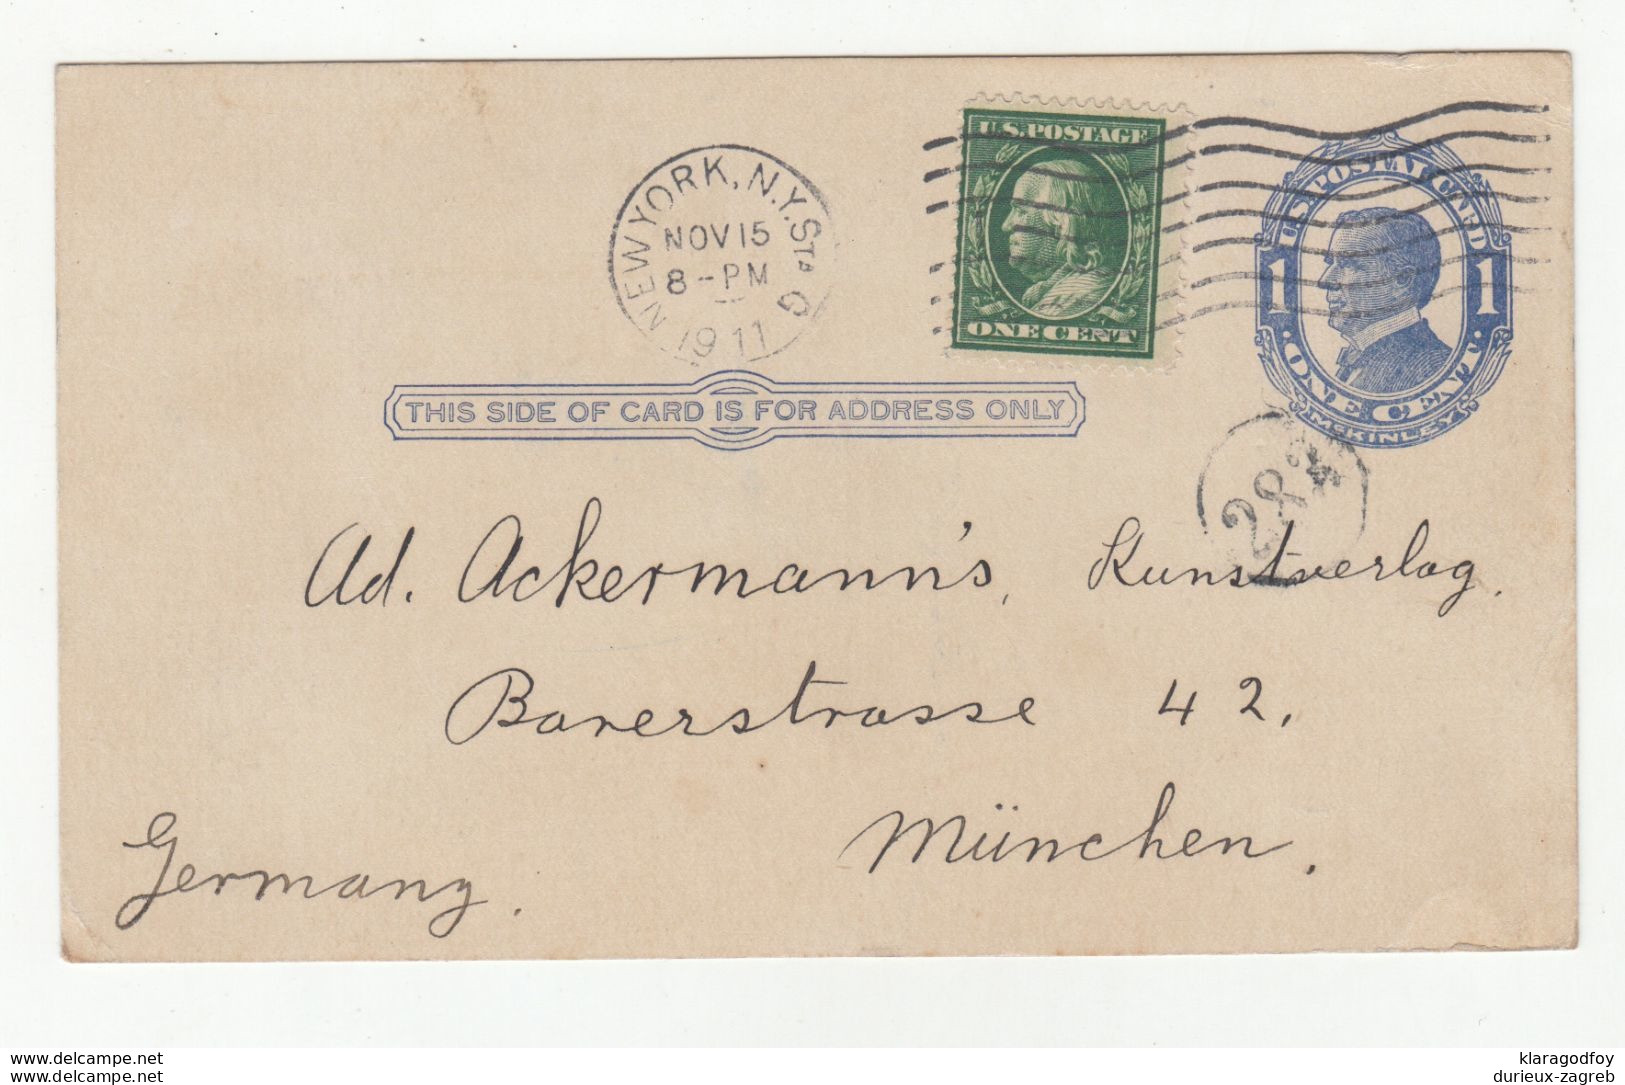 NEW YORK, N.Y. STA G
NOV 15
8-PM
1911
U.S. POSTAGE
ONE CENT
U.S. POSTAL CARD
1 1
ONE CENT
McKINLEY
THIS SIDE OF CARD IS FOR ADDRESS ONLY
Ad. Ackermann's, Kunstverlag.
Barerstrasse 42.
München.
Germany.
www.delcampe.net klaragodfoy
www.delcampe.net durieux-zagreb